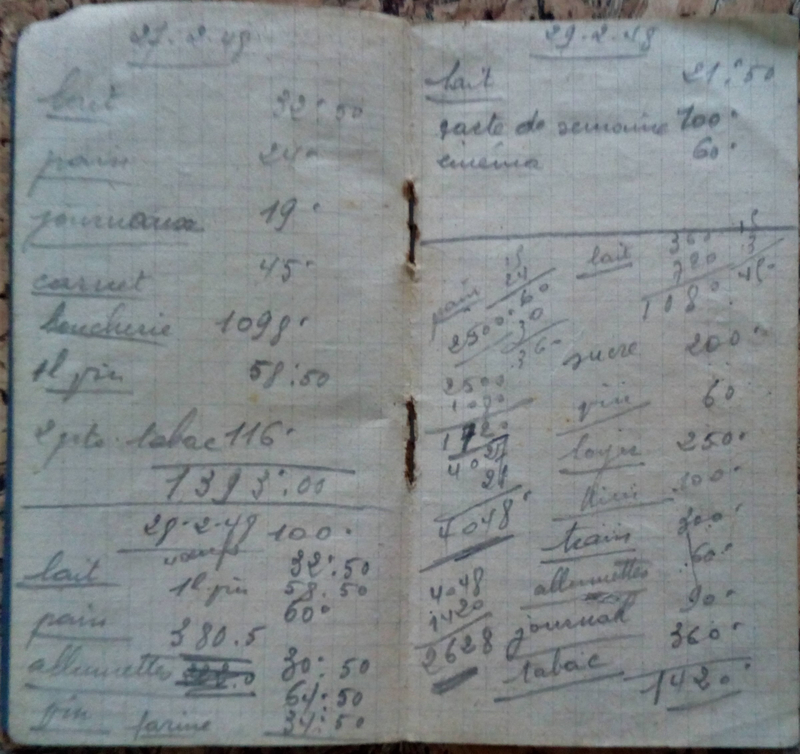 27-2-48
lait 32:50
pain 24
journaux 19
carnet 45
boucherie 1098
1l vin 58:50
2 pts tabac 116
1393:00
28-2-48 100
lait 32:50
1l vin 58.50
pain 60
380.5
allumettes 30:50
64:50
vin farine 34:50
29-2-48
lait 21:50
carte de semaine 100
cinéma 60
15
24
60
30
36
pain
2500
lait
360
720
1080
15
3
45
sucre 200
vin 60
loyer 250
100
train 300
allumettes 60
journal 90
tabac 360
1420
2500
1080
1420
4027
21
4048
4048
1420
2628